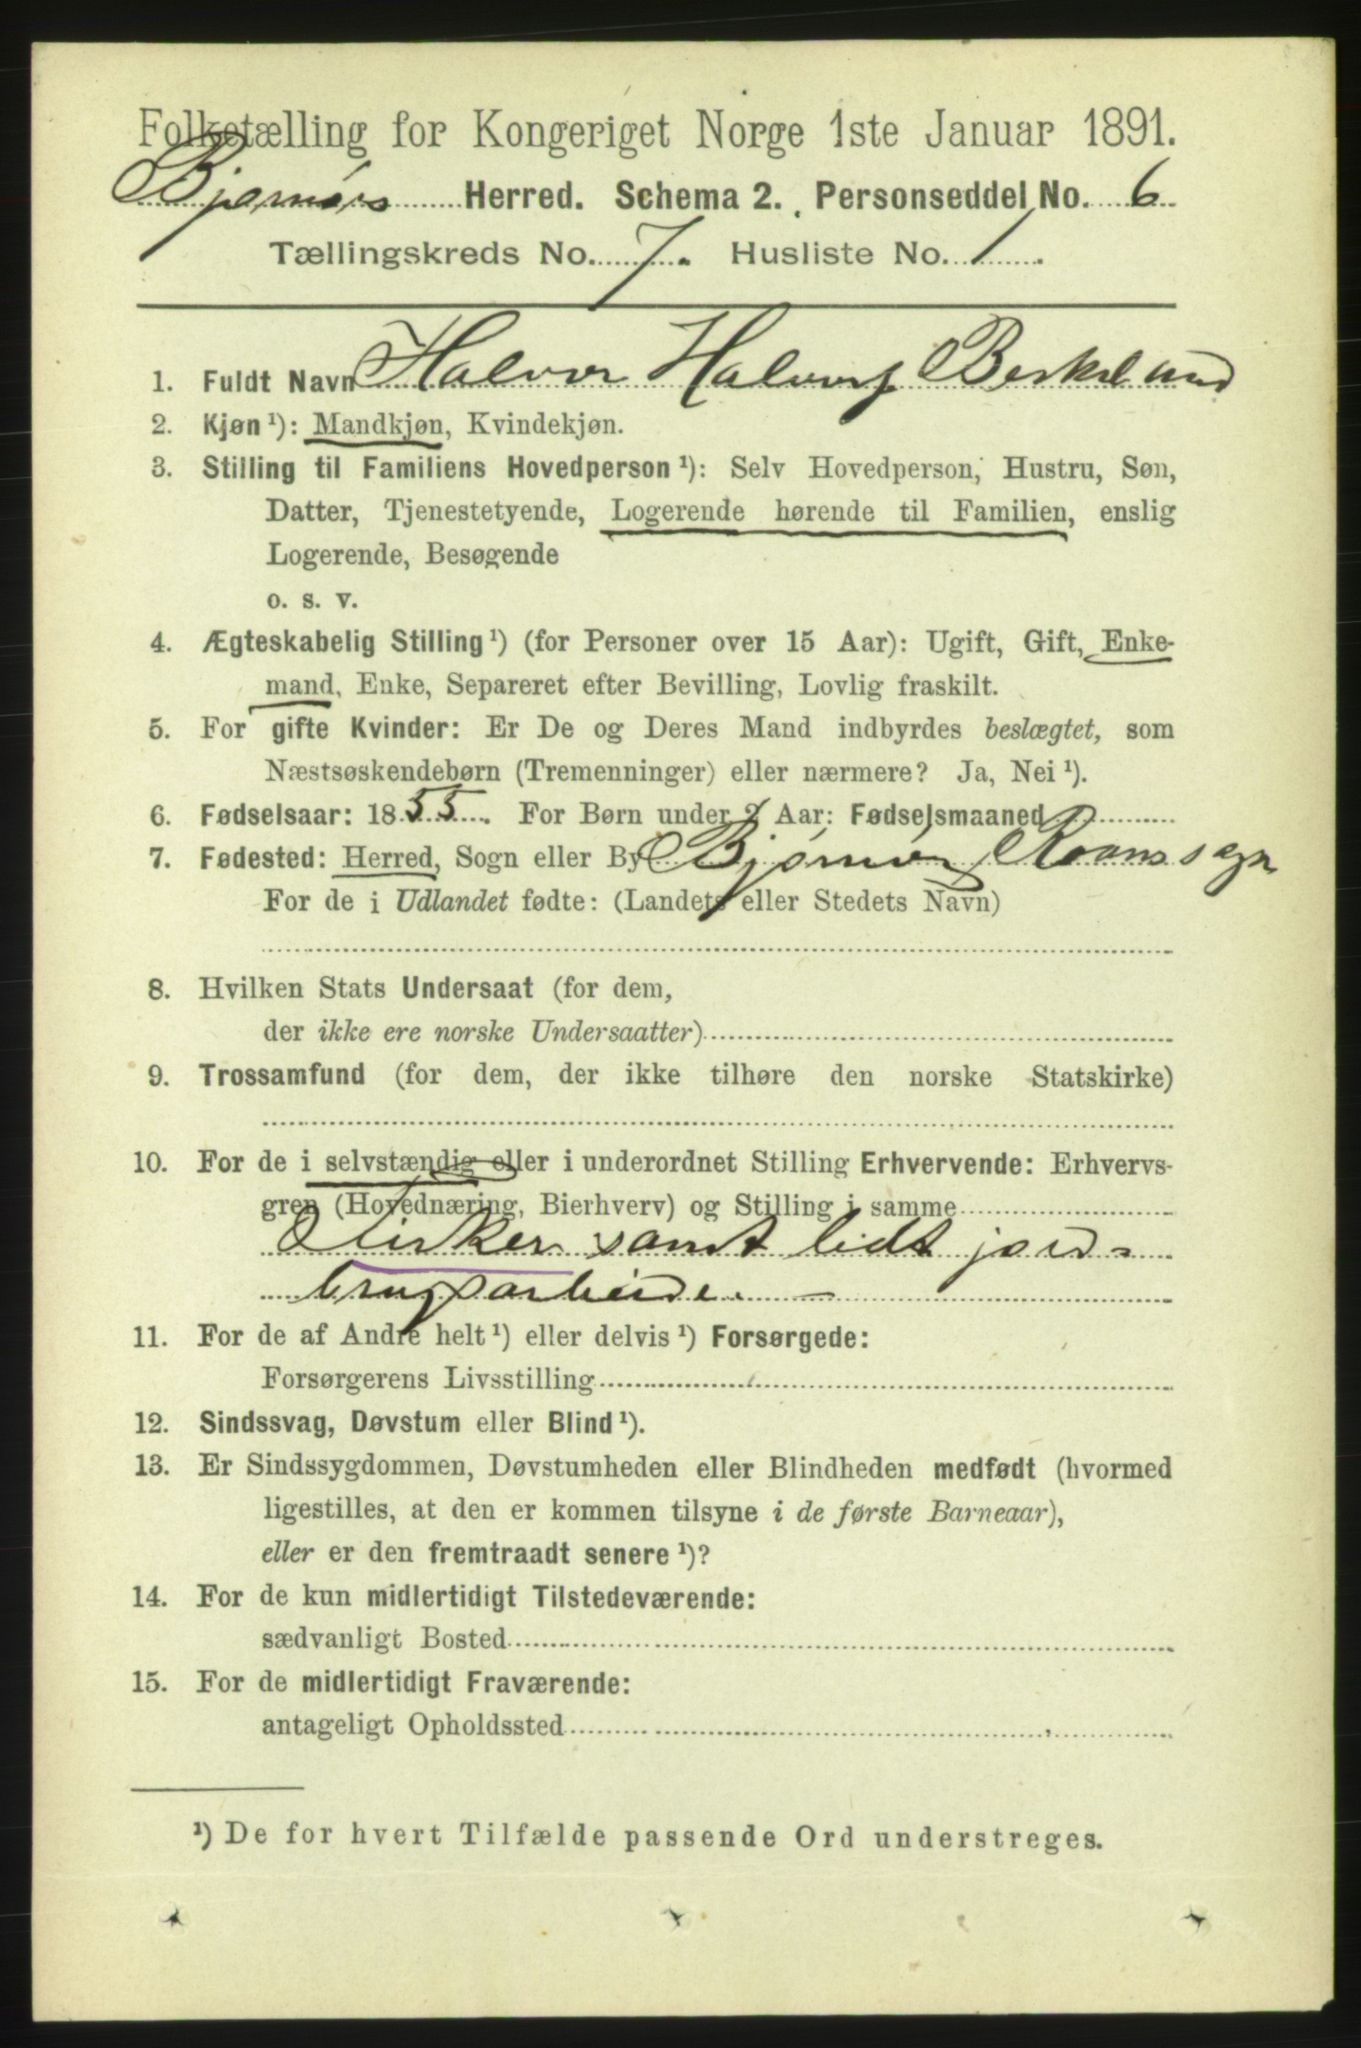 Folketælling for Kongeriget Norge 1ste Januar 1891.
Bjørnørs Herred. Schema 2. Personseddel No. 6
Tællingskreds No. 7. Husliste No. 1
1. Fuldt Navn Halvor Halvors Berkelund
2. Kjøn ¹): Mandkjøn, Kvindekjøn.
3. Stilling til Familiens Hovedperson ¹): Selv Hovedperson, Hustru, Søn,
Datter, Tjenestetyende, Logerende hørende til Familien, enslig
Logerende, Besøgende
o. s. v.
4. Ægteskabelig Stilling ¹) (for Personer over 15 Aar): Ugift, Gift, Enke-
mand, Enke, Separeret efter Bevilling, Lovlig fraskilt.
5. For gifte Kvinder: Er De og Deres Mand indbyrdes beslægtet, som
Næstsøskendebørn (Tremenninger) eller nærmere? Ja, Nei ¹).
6. Fødselsaar: 1855. For Børn under 2 Aar: Fødselsmaaned
7. Fødested: Herred, Sogn eller By Bjørnør, Roans sogn
For de i Udlandet fødte: (Landets eller Stedets Navn)
8. Hvilken Stats Undersaat (for dem,
der ikke ere norske Undersaatter)
9. Trossamfund (for dem, der ikke tilhøre den norske Statskirke)
10. For de i selvstændig eller i underordnet Stilling Erhvervende: Erhvervs-
gren (Hovednæring, Bierhverv) og Stilling i samme
samt lidt jord-
brugsarbeide. –
11. For de af Andre helt ¹) eller delvis ¹) Forsørgede:
Forsørgerens Livsstilling
12. Sindssvag, Døvstum eller Blind ¹).
13. Er Sindssygdommen, Døvstumheden eller Blindheden medfødt (hvormed
ligestilles, at den er kommen tilsyne i de første Barneaar),
eller er den fremtraadt senere ¹)?
14. For de kun midlertidigt Tilstedeværende:
sædvanligt Bosted
15. For de midlertidigt Fraværende:
antageligt Opholdssted
¹) De for hvert Tilfælde passende Ord understreges.